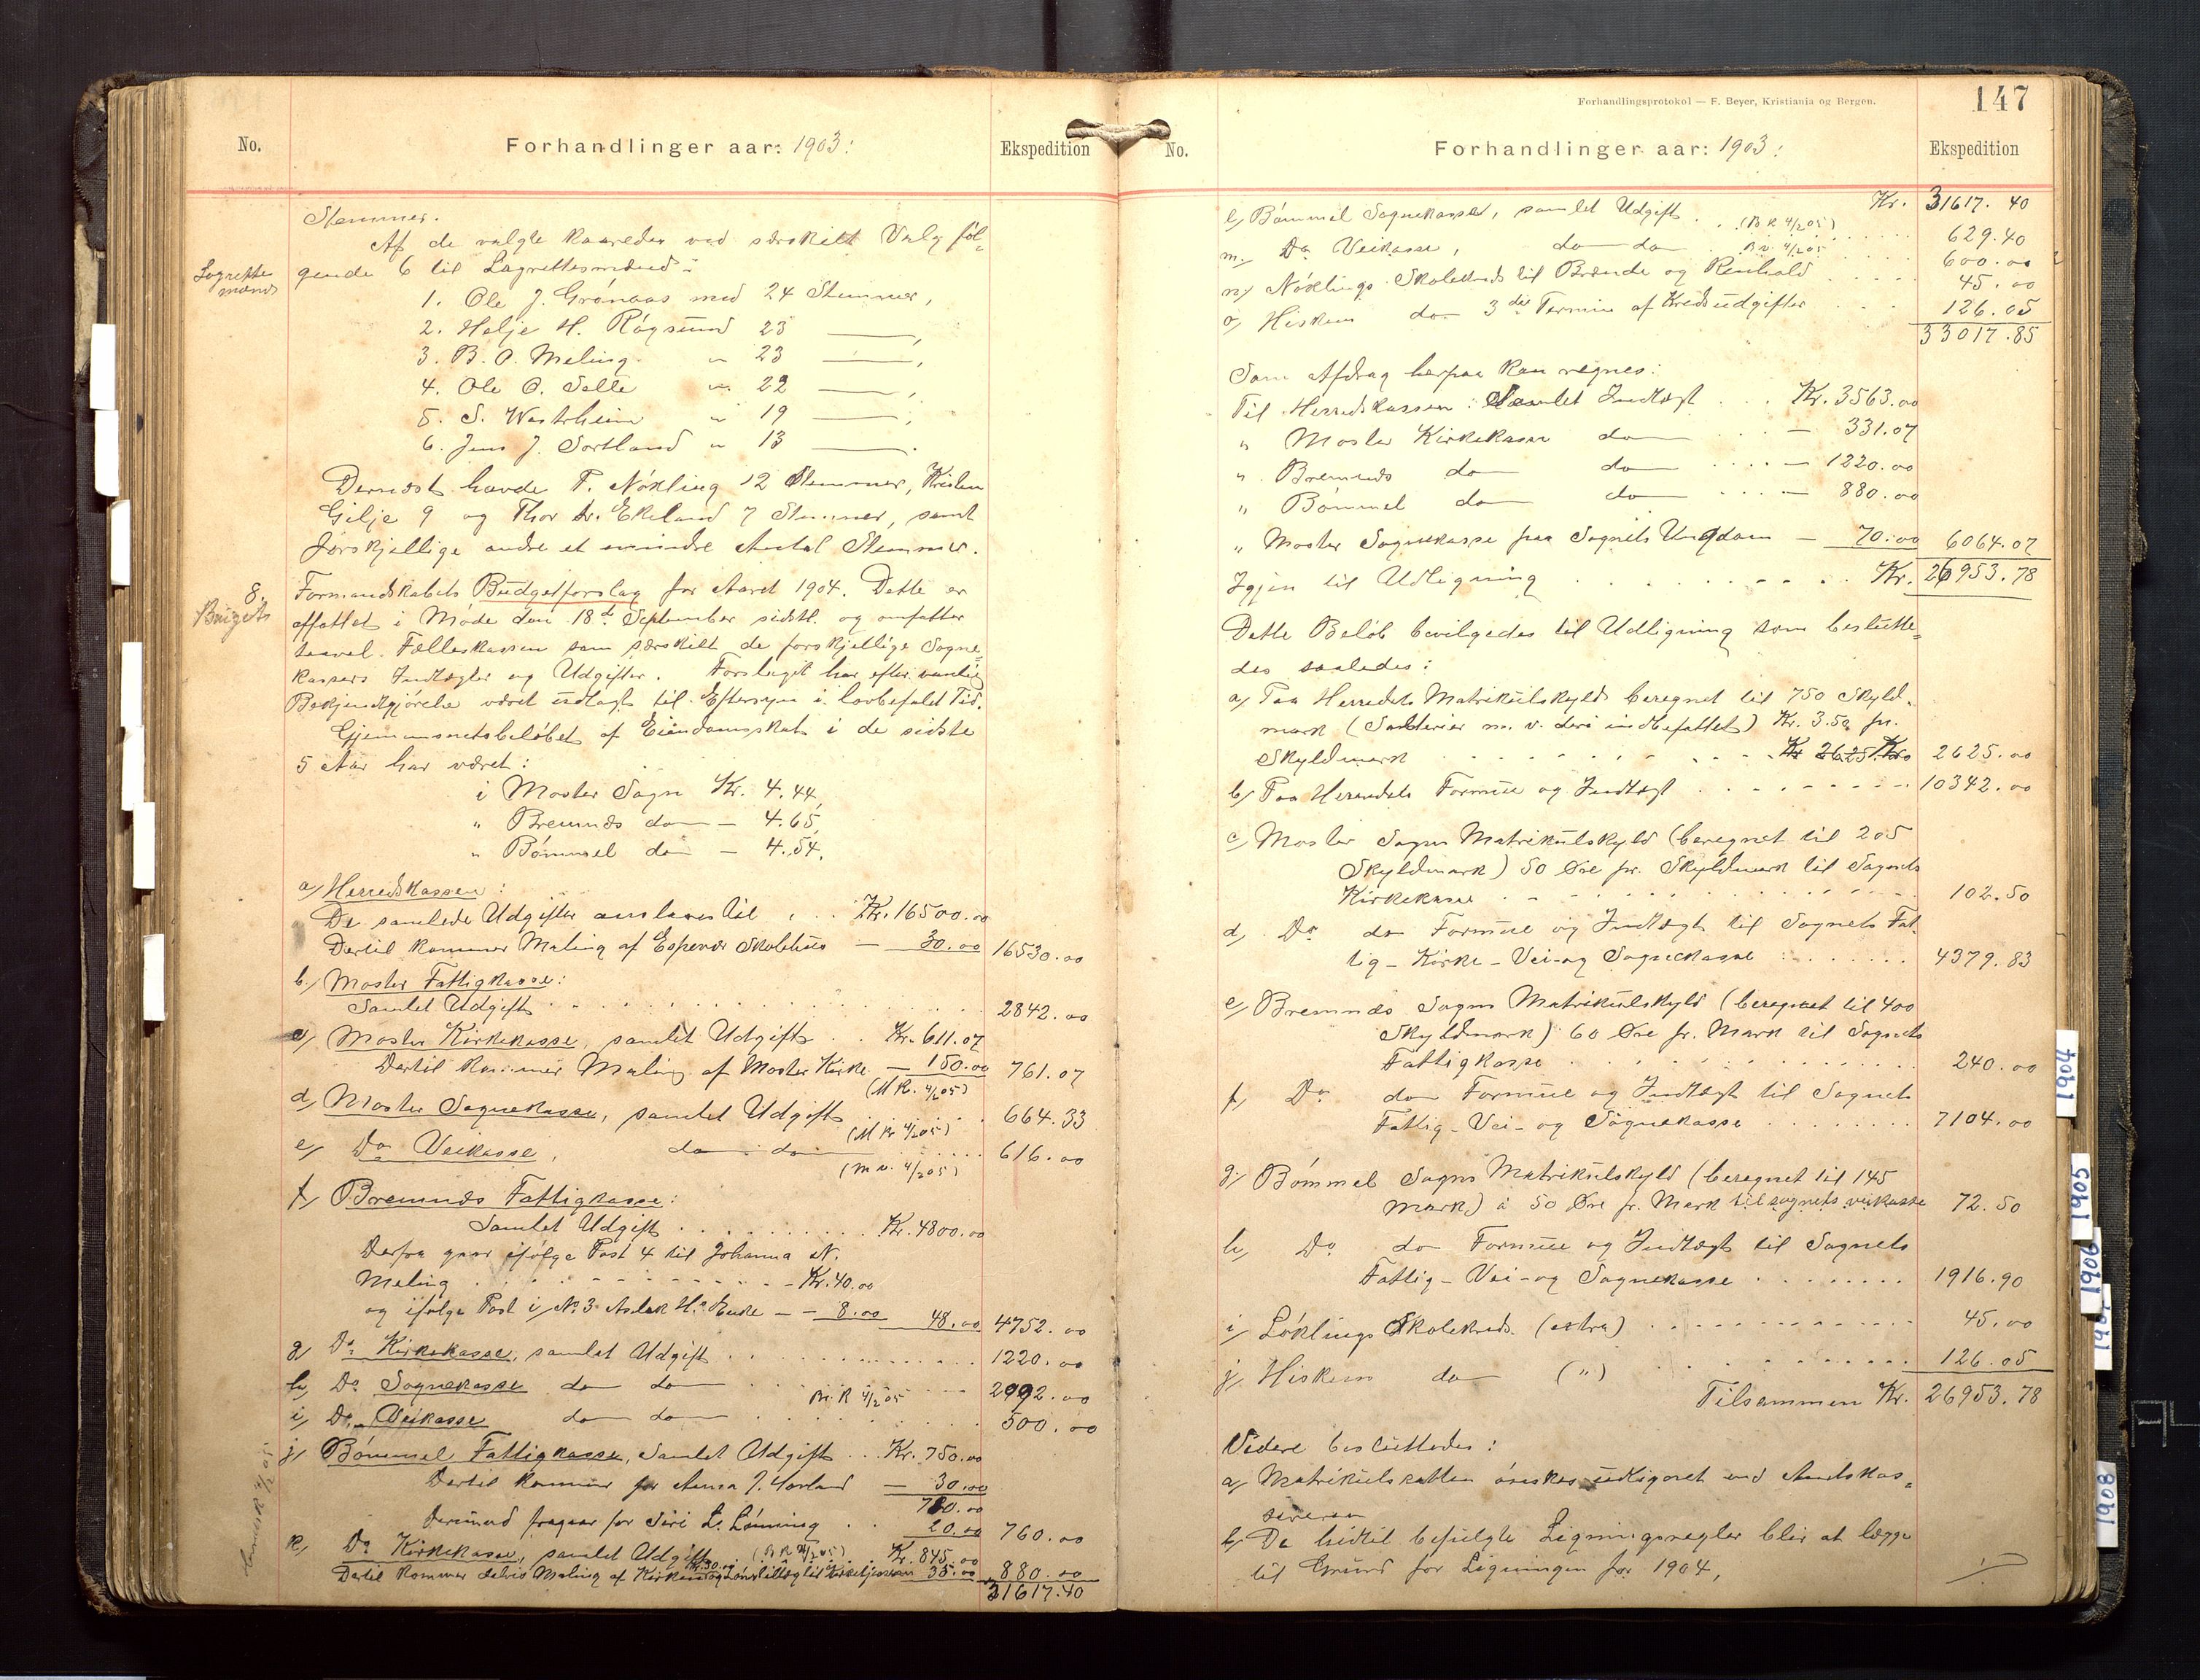 No.
Forhandlinger aar: 1903:
Ekspedition
Stemmer.
Af de valgte kaaredes ved særskilt Valg føl-
Lagrette
mænd
gende 6 til Lagrettesmænd:
1. Ole J. Grønaas med 24 Stemmer,
2. Helje H. Røgsund 23 —,
3. B. O. Meling " 23 —,
4. Ole O. Sælle " 22 —,
5. S. Westrheim " 19 —,
6. Jens J. Sortland " 13 —.
Dernæst havde T. Nøkling 12 Stemmer, Kristen
Gilje 9 og Thor Ekeland 7 Stemmer, samt
forskjellige andre et mindre Antal Stemmer.
8.
Budgets
Formandskabets Budgetforslag for Aaret 1904. Dette er
affattet i Møde den 18de September sidstl. og omfatter
saavel Fælleskassen som særskilt de forskjellige Sogne-
kassers Indtægter og Udgifter. Forslaget har efter vanlig
Bekjendtgjørelse været udlagt til Eftersyn i lovbefalet Tid.
Gjennemsnitsbeløbet af Eiendomsskat i de sidste
5 Aar har været:
i Moster Sogn Kr. 4.44,
" Bremnes do — 4.65,
" Bømmel do — 4.54.
a) Herredskassen:
De samlede Udgifter anslaaes til . . . Kr. 16500.00
Dertil kommer Maling af Espevær Skolehus — 30.00 16530.00
b) Moster Fattigkasse:
Samlet Udgift . . . 2842.00
c) Moster Kirkekasse, samlet Udgift . . Kr. 611.07
Dertil kommer Maling af Moster Kirke — 150.00 761.07
(M K. 4/2 05)
d) Moster Sognekasse, samlet Udgift . . . 664.33
(M Kr 4/2 05)
e) Do Veikasse, do do . . . 616.00
(m v. 4/2 05)
f) Bremnes Fattigkasse:
Samlet Udgift . . . Kr. 4800.00
Derfra gaar ifølge Post 4 til Johanna N.
Meling . . . Kr. 40.00
og ifølge Post i No 3 Aslak H. — 8.00 48.00 4752.00
g) Do Kirkekasse, samlet Udgift . . . 1220.00
h) Do Sognekasse do do . . . 2092.00
Br. K 4/2 05
i) Do Veikasse do do . . . 500.00
j) Bømmel Fattigkasse, Samlet Udgift . . . Kr. 750.00
Dertil kommer for Anna J. Hovland — 30.00
780.00
Derimod fragaar for Siri L. Lønning . . 20.00 760.00
k) Do Kirkekasse, samlet Udgift (B K 4/2 05) Kr. 845.00
Dertil kommer delvis Maling af Kirken Kr. 30.00 og Lønstillæg til Kirketjeneren 35.00 880.00
31617.40
Forhandlingsprotokol — F. Beyer, Kristiania og Bergen.
147
No.
Forhandlinger aar: 1903:
Ekspedition
Kr. 31617.40
l) Bømmel Sognekasse, samlet Udgift . . (B K 4/2 05) . . 629.40
m) Do Veikasse, do do . B v. 4/2 05 . . 600.00
n) Nøklings Skolekreds til Brænde og Renhold . . . 45.00
o) Hiskens do 3die Termin af Kredsudgifter . . . 126.05
33017.85
Som Afdrag herpaa kan regnes:
Til Herredskassen: Samlet Indtægt . . . Kr. 3563.00
" Moster Kirkekasse do . . . — 331.07
" Bremnes do do . . . — 1220.00
" Bømmel do do . . . — 880.00
" Moster Sognekasse fra Sognets Ungdom — 70.00 6064.07
Igjen til Udligning . . . Kr. 26953.78
Dette Beløb bevilgedes til Udligning som beslutte-
des saaledes:
a) Paa Herredets Matrikulskyld beregnet til 750 Skyld-
mark (Salterier m. v. deri indbefattet) Kr. 3.50 pr.
Skyldmark . . . Kr 2625.00 2625.00
b) Paa Herredets Formue og Indtægt . . . 10342.00
c) Moster Sogns Matrikulskyld (beregnet til 205
Skyldmark) 50 Øre pr. Skyldmark til Sognets
Kirkekasse . . . 102.50
d) Do do Formue og Indtægt til Sognets Fat-
tig- Kirke- Vei- og Sognekasse . . . 4379.83
e) Bremnes Sogns Matrikulskyld (beregnet til 400
Skyldmark) 60 Øre pr. Mark til Sognets
Fattigkasse . . . 240.00
f) Do do Formue og Indtægt til Sognets
Fattig- Vei- og Sognekasse . . . 7104.00
g) Bømmel Sogns Matrikulskyld (beregnet til 145
Mark) a 50 Øre pr. Mark til sognets veikasse 72.50
h) Do do Formue og Indtægt til Sognets
Fattig- Vei- og Sognekasse . . . 1916.90
i) Løklings Skolekreds (extra) . . . 45.00
j) Hiskens do (") . . . 126.05
Tilsammen Kr. 26953.78
Videre besluttedes:
a) Matrikulskatten ønskes udlignet ved Amtskas-
sereren
b) De hidtil befulgte Ligningsregler blir at lægge
til Grund for Ligningen for 1904,
1904
1905
1906
1908